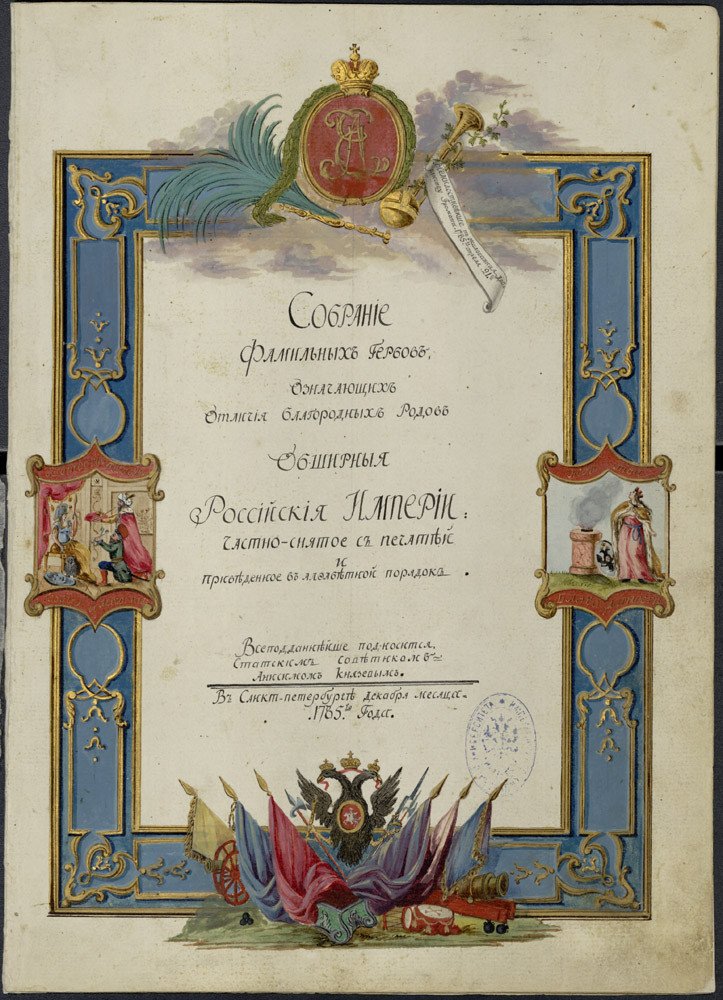 Собранiе
Фамильныхъ Гербовъ,
Означающихъ
Отличiя благородныхъ Родовъ
Обширныя
Россiйскiя Имперiи:
частно-снятое съ печатѣй
и
приведенное въ алфавѣтной порядокъ.
Всеподданнѣйше под-носится,
Статскимъ совѣтникомъ
Анисимомъ Князевымъ.
Въ Санкт-петербургѣ декабря месяца
1785.го Года.